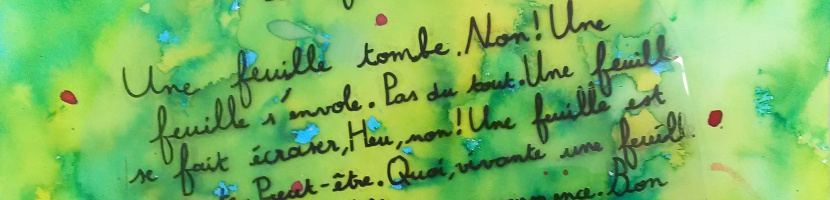 Une feuille tombe. Non! Une
feuille s'envole. Pas du tout. Une feuill
se fait écraser, Heu, non! Une feuille est
Peut-être. Quoi, vivante une feuille!.
Bon